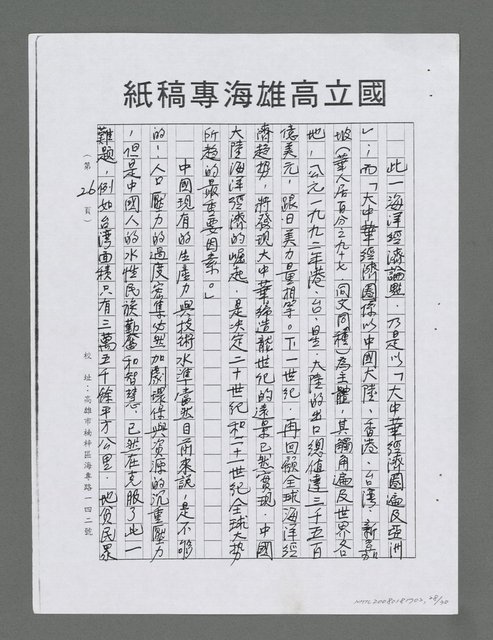 國立高雄海專稿紙
此一海洋經濟論點，乃是以「大中華經濟圈遍及亞洲
」；而「大中華經濟圈係以中國大陸、香港、台灣、新嘉
坡（華人居百分之九十七，同文同種）為主體，其觸角遍及世界各
地，公元一九九二年港、台、星、大陸的出口總值達三千五百
億美元，跟日美力量相等。下一世紀，再回顧全球海洋經
濟趨勢，將發現大中華締造龍世紀的遠景已然實現，中國
大陸海洋經濟的崛起，是決定二十世紀和二十一世紀全球大勢
所趨的最重要因素。」
中國現有的生產力與技術水準當然目前來說，是不夠
的，人口壓力的過度密集必然加劇環保與資源的沉重壓力
，但是中國人的水性民族勤奮和智慧，已然在克服了此一
難題，例如台灣面積只有三萬五千餘平方公里，地貧民眾
（第26頁）
校址：高雄市楠梓區海專路一四二號
NMTL20080187702, 28/30